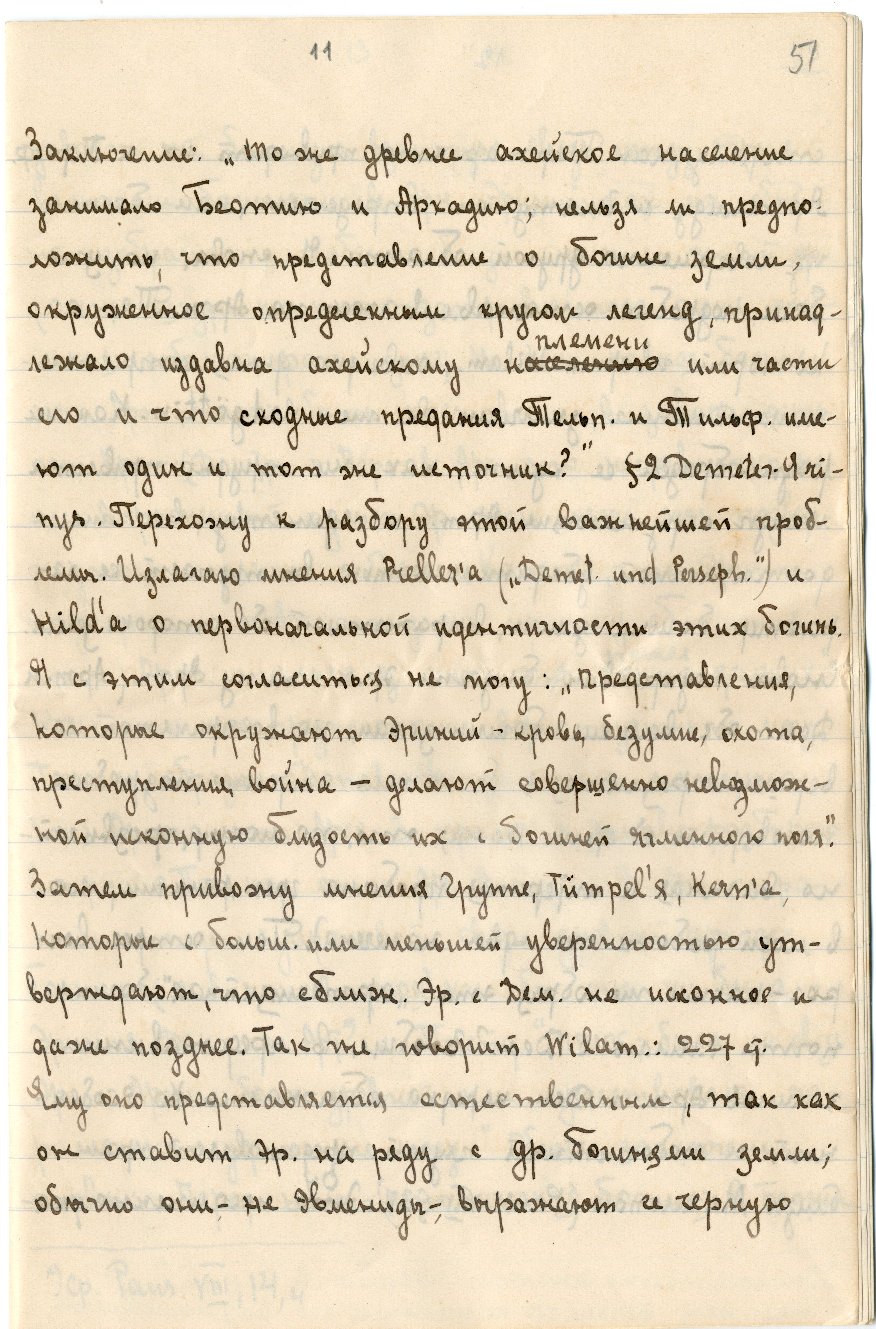 11
51
Заключение: „То же древнее ахейское население
занимало Беотию и Аркадию; нельзя ли предпо-
ложить, что представление о богине земли,
окруженное определенным кругом легенд, принад-
племени
лежало издавна ахейскому населению или части
его и что сходные предания Тельп. и Тильф. име-
ют один и тот же источник?" §2 Demeter-Эri-
nys. Перехожу к разбору этой важнейшей проб-
лемы. Излагаю мнения Preller'а („Demet. und Perseph.") и
Hild'а о первоначальной идентичности этих богинь.
Я с этим согласиться не могу: „Представления,
которые окружают Эриний - кровь, безумие, охота,
преступления, война — делают совершенно невозмож-
ной исконную близость их с богиней ячменного поля".
Затем привожу мнения Группе, Tümpel'я, Kern'а,
которые с больш. или меньшей уверенностью ут-
верждают, что сближ. Эр. с Дем. не исконное и
даже позднее. Так же говорит Wilam.: 227 q.
Ему оно представляется естественным, так как
он ставит Эр. на ряду с др. богинями земли;
обычно они - не Эвмениды -, выражают ее черную